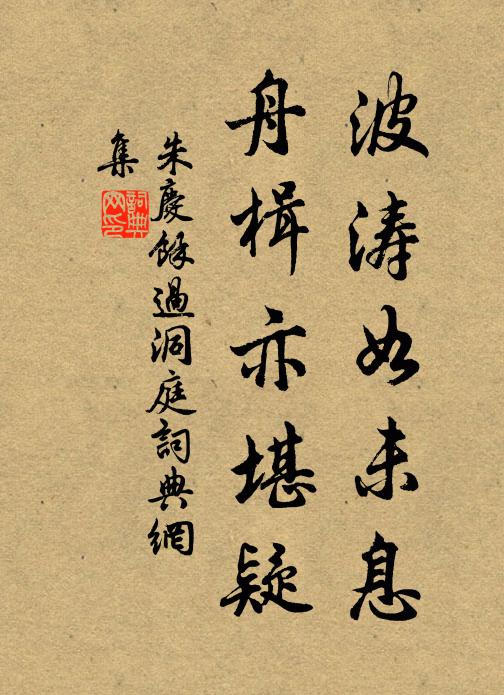 波涛如未息
舟楫亦堪疑
朱慶餘過洞庭詞典網
集
詞典
网印